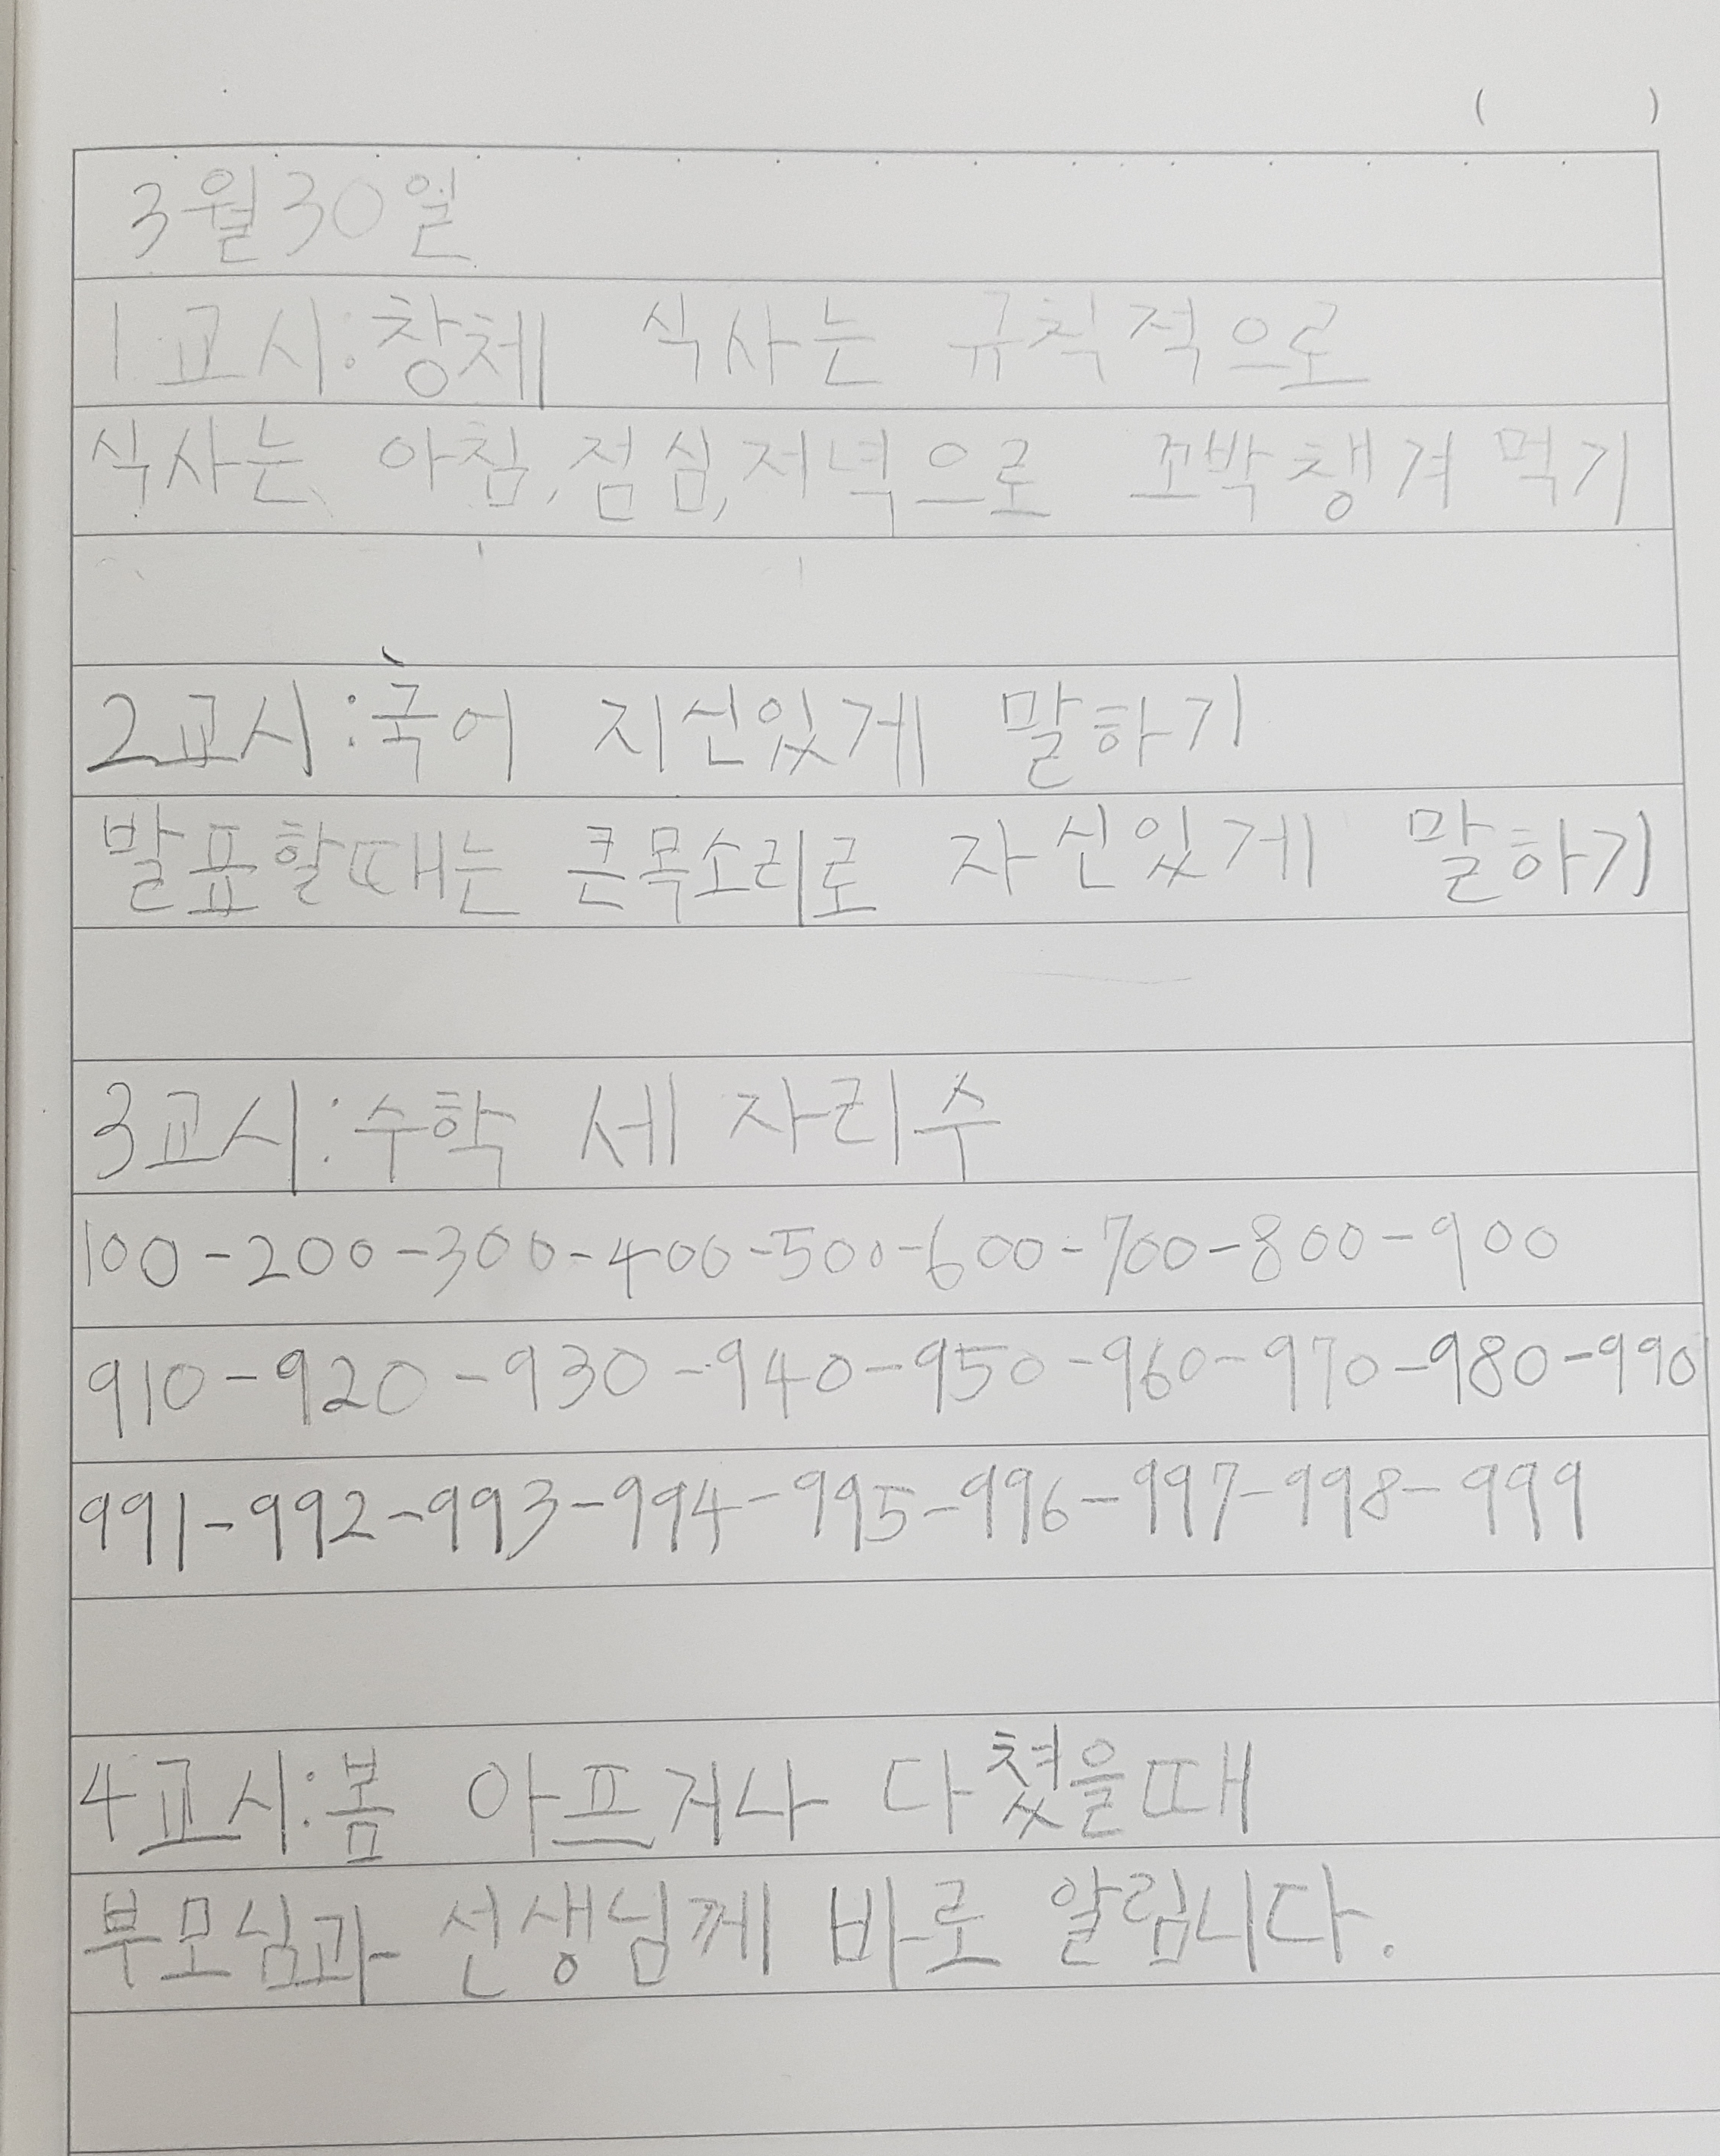 ( )
3월30일
1교시:창체 식사는 규칙적으로
식사는 아침,점심,저녁으로 꼬박챙겨먹기
2교시:국어 지신있게 말하기
발표할때는 큰목소리로 자신있게 말하기
3교시:수학 세 자리수
100-200-300-400-500-600-700-800-900
910-920-930-940-950-960-970-980-990
991-992-993-994-995-996-997-998-999
4교시:봄 아프거나 다쳤을때
부모님과 선생님께 바로 알림니다.